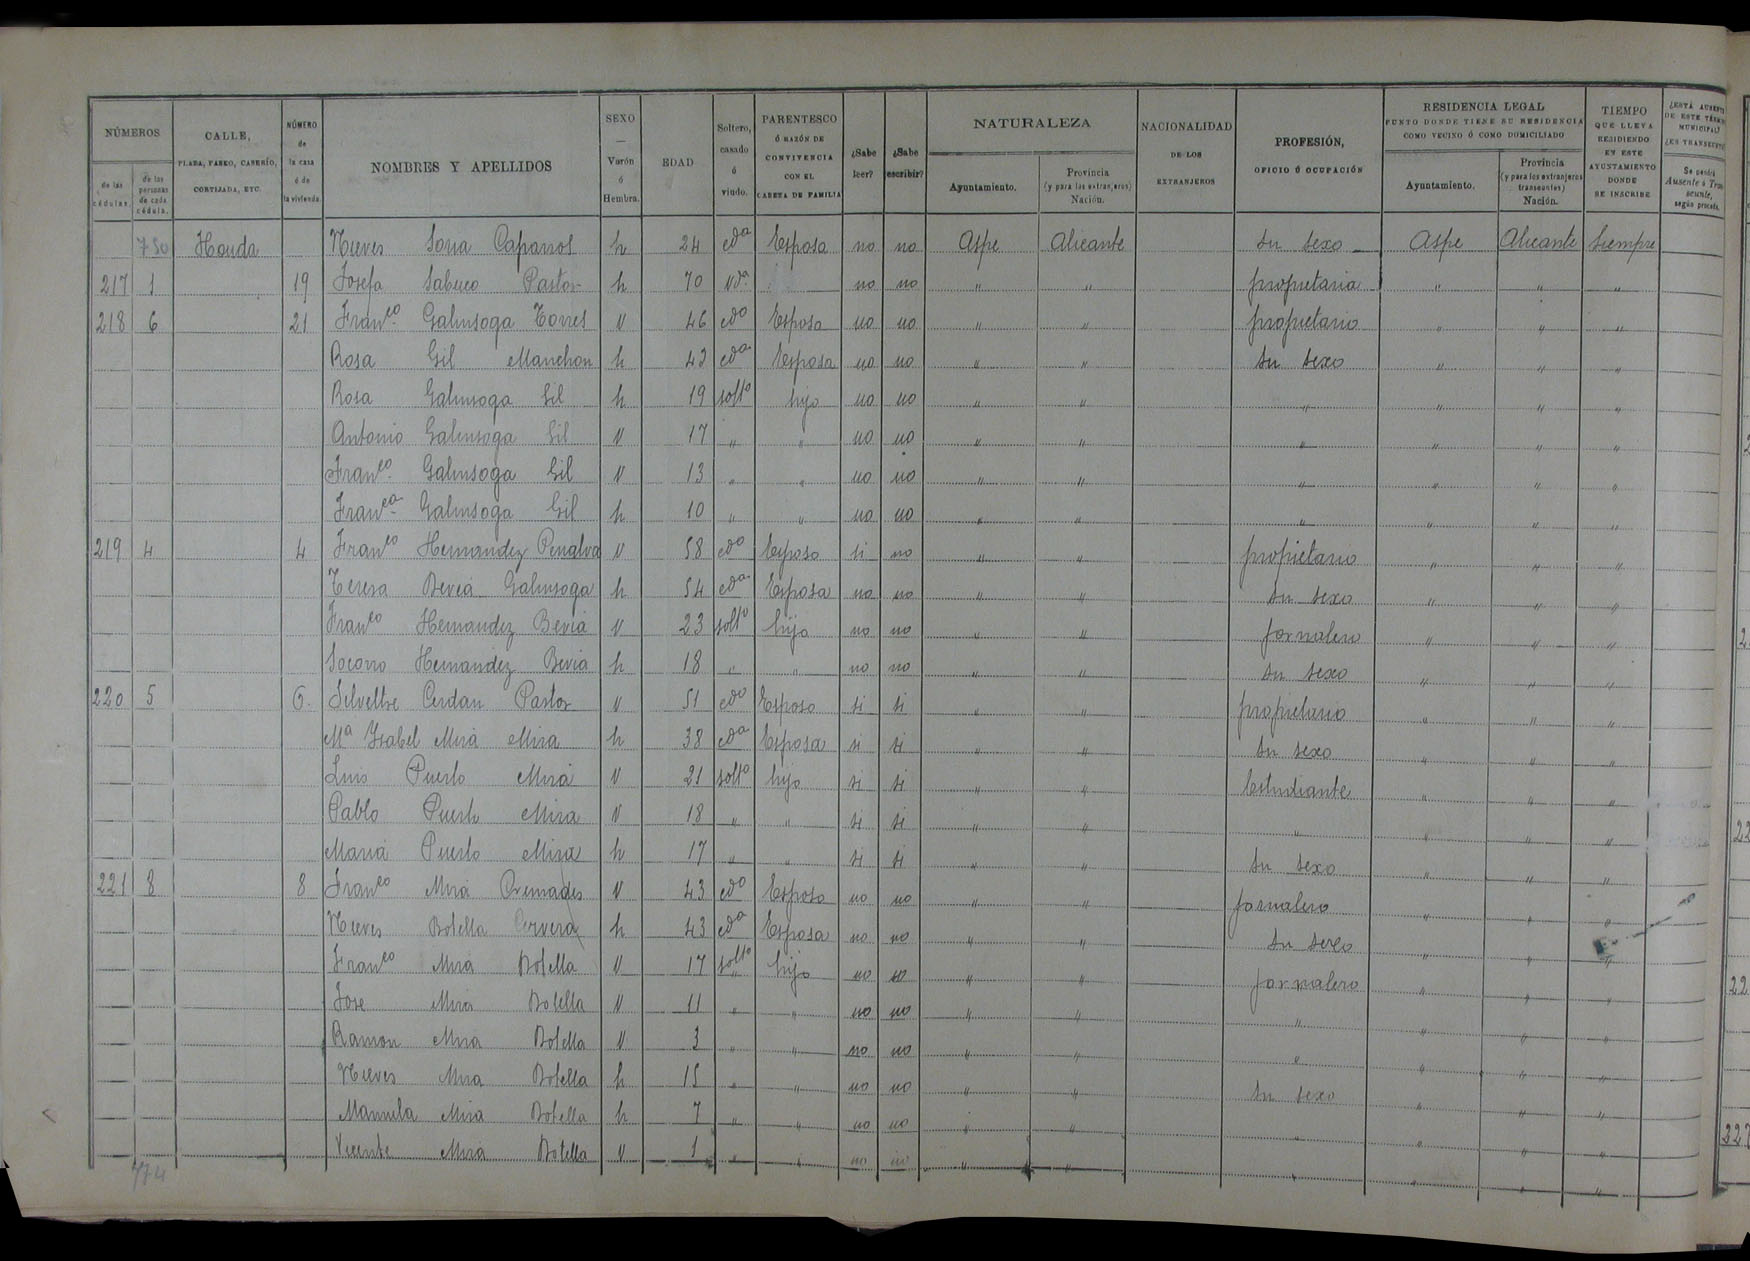 NÚMEROS
de las cédulas.
de las personas de cada cédula.
CALLE,
PLAZA, PASEO, CASERÍO,
CORTIJADA, ETC.
NÚMERO
de
la casa
ó de
la vivienda.
NOMBRES Y APELLIDOS
SEXO
—
Varón
ó
Hembra.
EDAD
Soltero,
casado
ó
viudo.
PARENTESCO
Ó RAZÓN DE
CONVIVENCIA
CON EL
CABEZA DE FAMILIA
¿Sabe
leer?
¿Sabe
escribir?
NATURALEZA
Ayuntamiento.
Provincia
(y para los extranjeros)
Nación.
NACIONALIDAD
DE LOS
EXTRANJEROS
PROFESIÓN,
OFICIO Ó OCUPACIÓN
RESIDENCIA LEGAL
PUNTO DONDE TIENE SU RESIDENCIA
COMO VECINO Ó COMO DOMICILIADO
Ayuntamiento.
Provincia
(y para los extranjeros
transeuntes)
Nación.
TIEMPO
QUE LLEVA
RESIDIENDO
EN ESTE
AYUNTAMIENTO
DONDE
SE INSCRIBE
¿ESTÁ AUSENTE
DE ESTE TÉRMINO
MUNICIPAL?
Se pondrá
según proceda.
750 Honda Nieves Soria h 24 cda Esposa no no Aspe Alicante su sexo Aspe Alicante Siempre
217 1 19 Josefa Sabuco Pastor h 70 vda no no " " propietaria " " "
218 6 21 Franco Galinsoga Torres v 46 cdo Esposo no no " " propietario " " "
Rosa Gil Manchon h 42 cda Esposa no no " " su sexo " " "
Rosa Galinsoga Gil h 19 solto hijo no no " " " " " "
Antonio Galinsoga Gil v 17 " " no no " " " " " "
Franco Galinsoga Gil v 13 " " no no " " " " " "
Franca Galinsoga Gil h 10 " " no no " " " " " "
219 4 4 Franco Hernandez Penalva v 58 cdo Esposo si no " " propietario " " "
Teresa Beviá Galinsoga h 54 cda Esposa no no " " su sexo " " "
Franco Hernandez Beviá v 23 solto hijo no no " " jornalero " " "
Socorro Hernandez Beviá h 18 " " no no " " su sexo " " "
220 5 6 Silvestre Cerdan Pastor v 51 cdo Esposo si si " " propietario " " "
Mª Ysabel Mirá Mira h 38 cda Esposa si si " " su sexo " " "
Luis Puerto Mirá v 21 solto hijo si si " " Estudiante " " "
Pablo Puerto Mira v 18 " " si si " " " " " "
Maria Puerto Mira h 17 " " si si " " su sexo " " "
221 8 8 Franco Mirá Cremades v 43 cdo Esposo no no " " jornalero " " "
Nieves Botella Cervera h 43 cda Esposa no no " " su sexo " " "
Franco Mirá Botella v 17 solto hijo no no " " jornalero " " "
Jose Mirá Botella v 11 " " no no " " " " " "
Ramon Mira Botella v 3 " " no no " " " " " "
Nieves Mira Botella h 15 " " no no " " su sexo " " "
Manuela Mira Botella h 7 " " no no " " " " " "
Vicente Mirá Botella v 1 " " no no " " " " " "
774